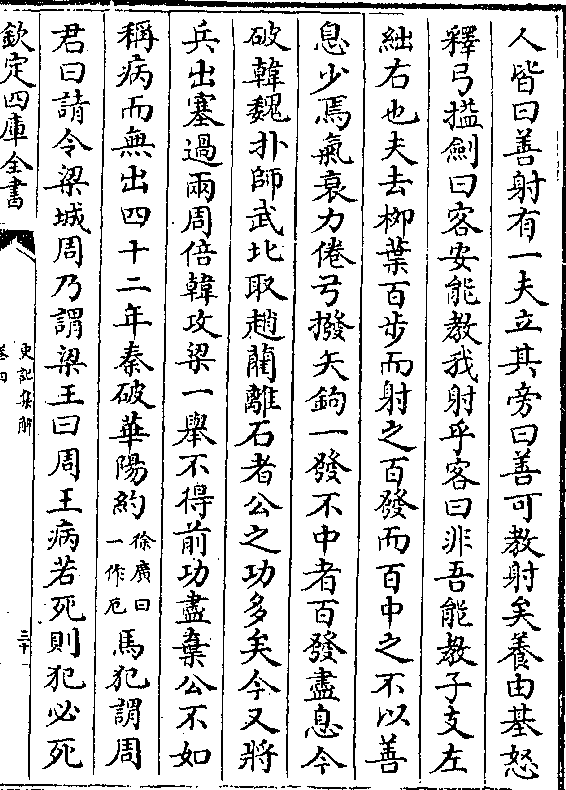 人皆曰善射有一夫立其旁曰善可教射矣養由基怒
釋弓搤劍曰客安能教我射乎客曰非吾能教子支左
絀右也夫去栁葉百步而射之百發而百中之不以善
息少焉氣衰力倦弓撥矢鉤一發不中者百發盡息今
破韓魏扑師武北取趙藺離石者公之功多矣今又將
兵出塞過兩周倍韓攻梁一舉不得前功盡棄公不如
稱病而無出四十二年秦破華陽約徐廣曰一作厄馬犯謂周
君曰請令梁城周乃謂梁王曰周王病若死則犯必死
欽定四庫全書
史記集解
卷四
三十